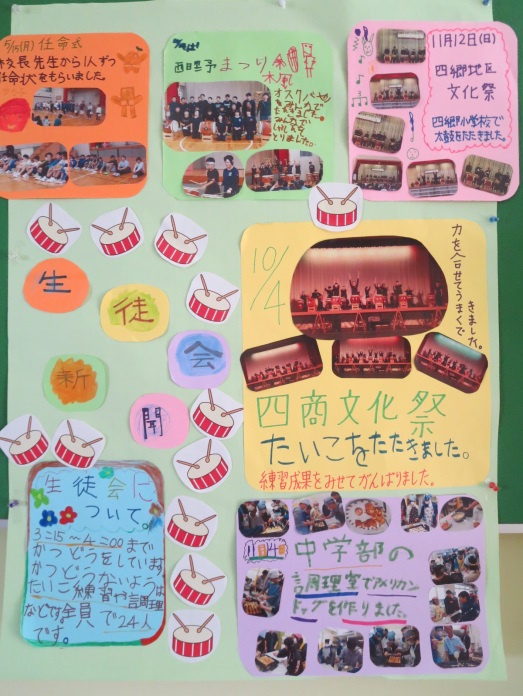 任命式
校長先生から1人ずつ
任命状をもらいました。
まつり
11月12日(日)
四郷地区
文化祭
四郷小学校で
太鼓をたたきました。
生
徒
会
新
聞
10/4
力を合せてうまくで
きました。
四商文化祭
たいこをたたきました。
練習成果をみせてがんばりました。
生徒会に
ついて。
3:15～4:00まで
かつどうをしています
かつどうないようは
たいこ練習や調理
などです全員で24人
です。
中学部の
調理室でアメリカン
ドッグを作りました。